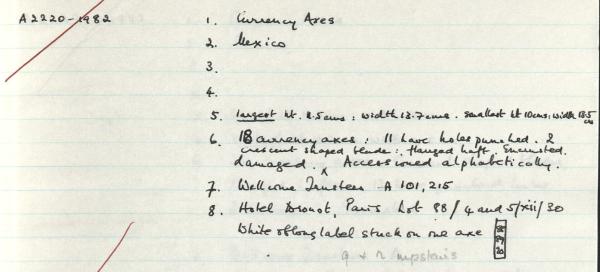 A2220-1982
1. Currency Axes
2. Mexico
3.
4.
5. largest ht. 8.5cms : width 13.7cms. smallest ht 10cms: width 18.5 cms
6. 18 currency axes : 11 have holes punched. 2
crescent shaped blade : flanged haft. Encrusted.
damaged. x Accessioned alphabetically.
7. Wellcome Trustees A 101,215
8. Hotel Drouot, Paris Lot 88/4 and 5/xii/30
White oblong label stuck on one axe
upstairs